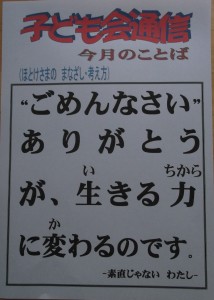 子ども会通信
今月のことば
(ほとけさまの まなざし・考え方)
“ごめんなさい”
ありがとう
が、生きる力
い ちから
に変わるのです。
か
-素直じゃない わたし-